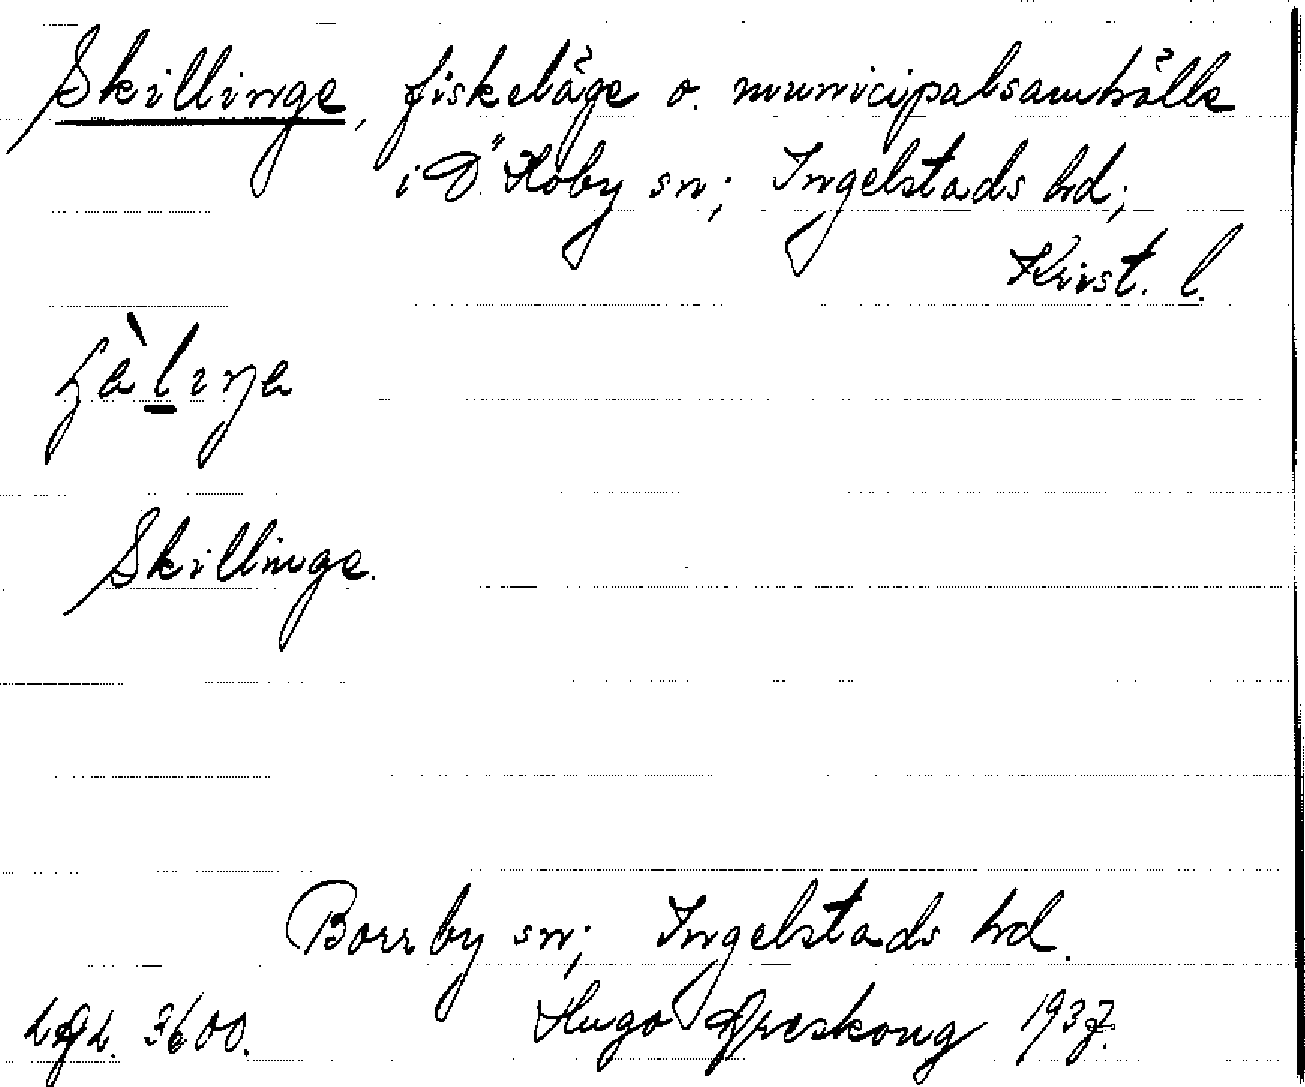 Skillinge, fiskeläge o. municipalsamhälle
i Ö. Hoby sn; Ingelstads hd;
Krist. l.
Skillinge.
Borrby sn; Ingelstads hd.
3600. Hugo 1937.